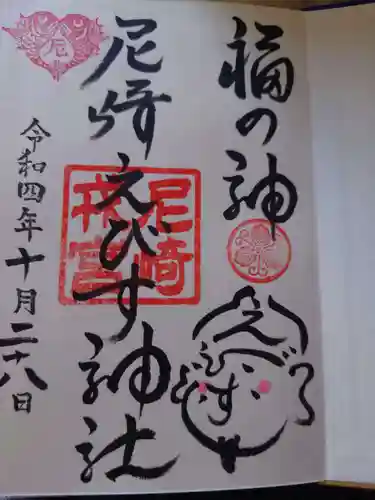 福の神
えびす
尼崎えびす神社
尼
尼崎
戎宮
令和四年十月二十八日